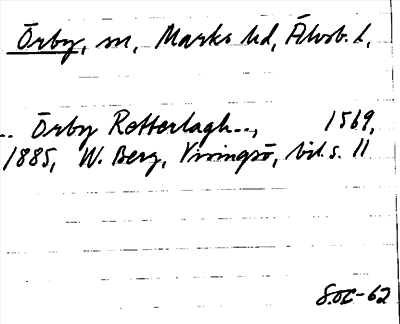 Örby, sn, Marks hd, Älvsb. l.
.. Örby Retterlagh..., 1569,
1885, W. Berg, Visingsö, bil. s. 11
S.OC-62